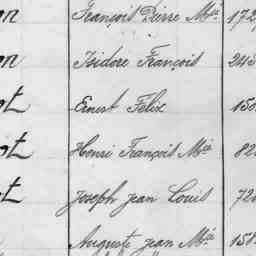 François Pierre M^ie 172
Isidore François 243
ot Ernest Félix 150
ot Henri François M^ie 82
ot Joseph Jean Louis 720
Auguste Jean M^ie 158